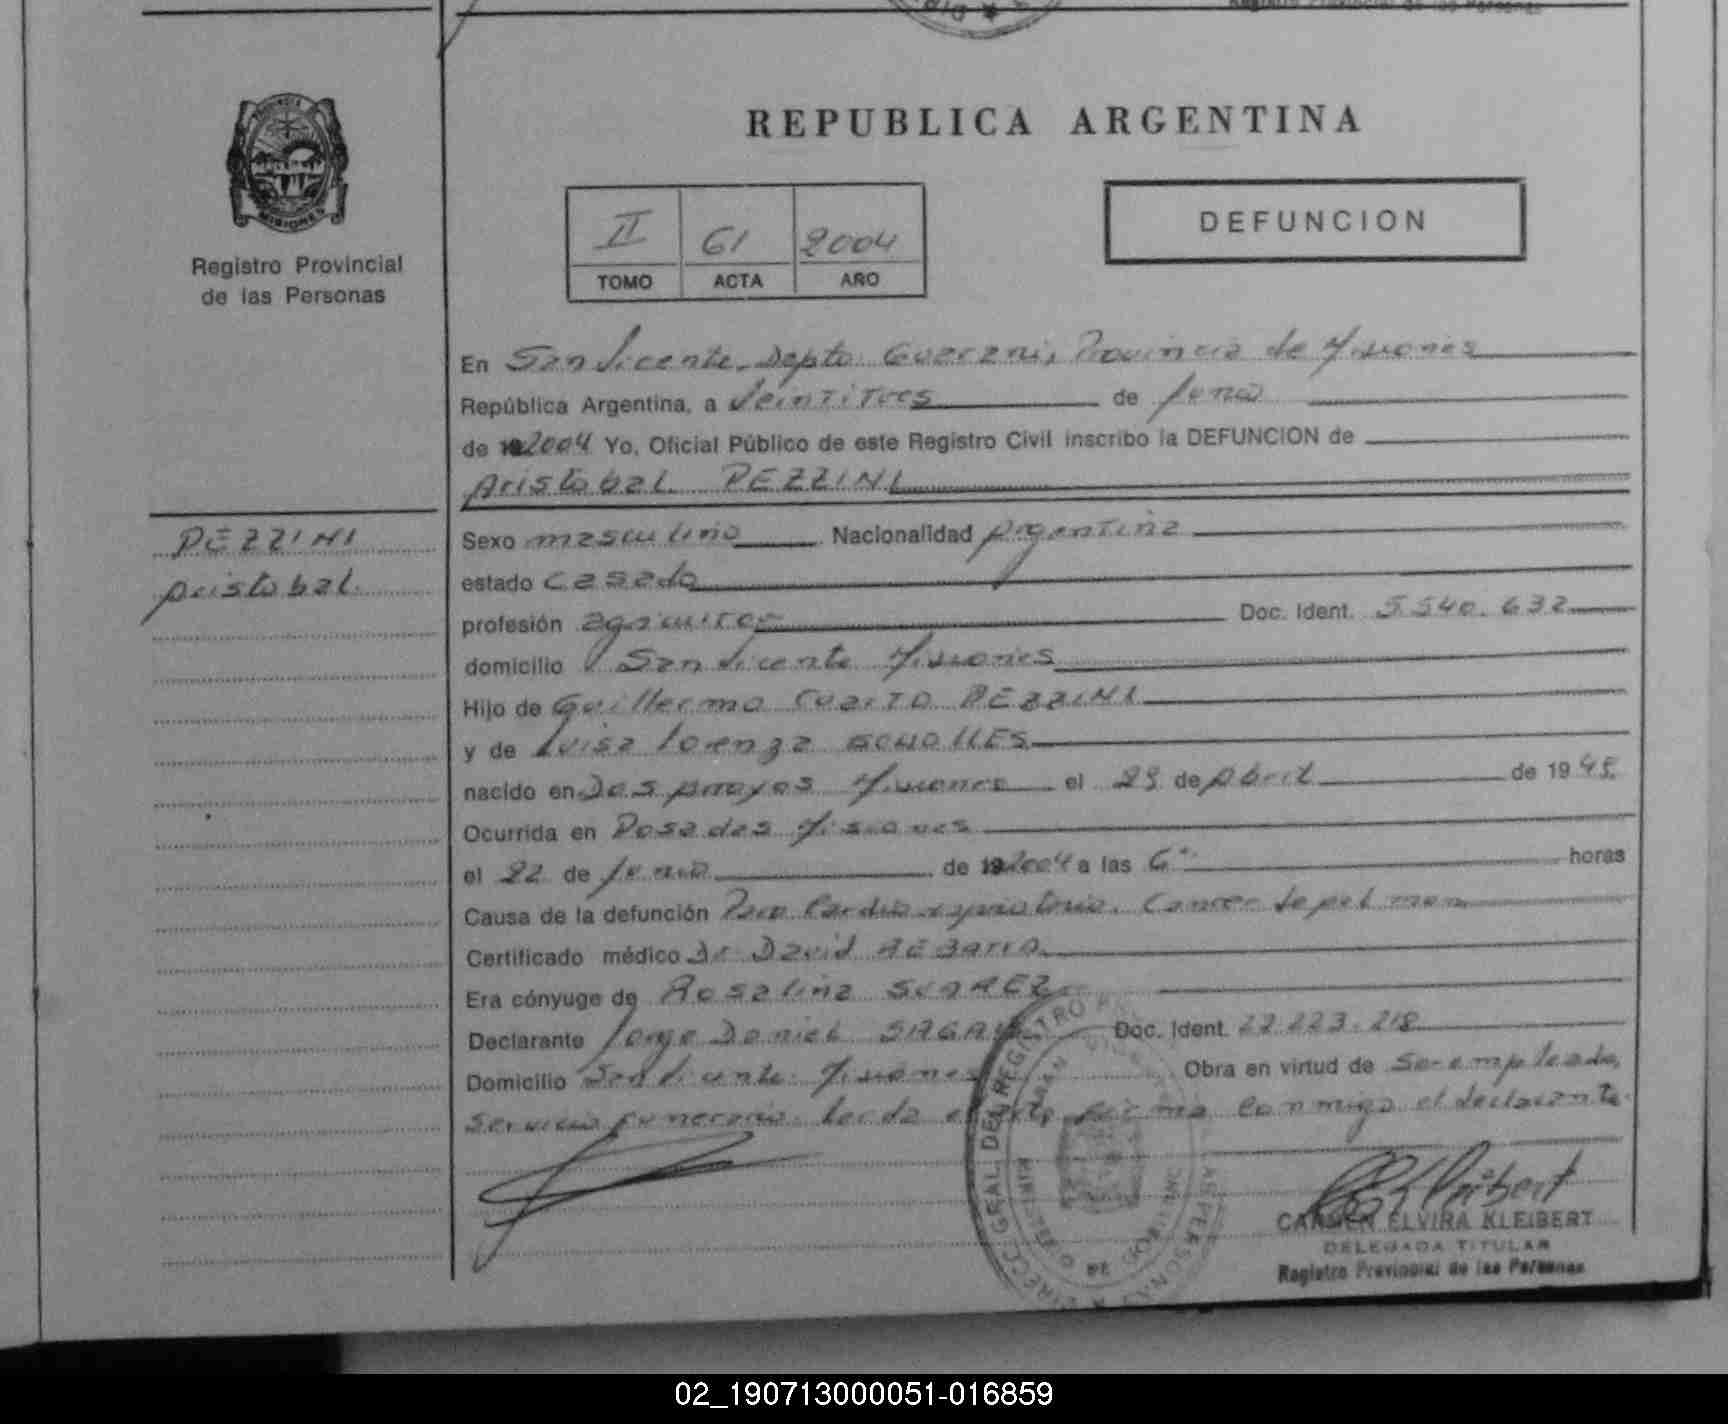 REPUBLICA ARGENTINA
PROVINCIA
MISIONES
Registro Provincial
de las Personas
II 61 2004
TOMO ACTA AÑO
DEFUNCION
En San Vicente, Depto Guarani, Provincia de Misiones
República Argentina, a Veintitres de Junio
de 2004 Yo, Oficial Público de este Registro Civil inscribo la DEFUNCION de
Aristobal PEZZINI
PEZZINI
Aristobal.
Sexo masculino Nacionalidad Argentina
estado casado
profesión agricultor Doc. Ident. 5.540.632
domicilio San Vicente Misiones
Hijo de Guillermo PEZZINI
y de Luisa Lorenza
nacido en Dos Arroyos Misiones el 29 de Abril de 19
Ocurrida en Posadas Misiones
el 22 de Junio de 2004 a las 6 horas
Causa de la defunción Paro Cardio respiratorio. Cancer de pulmon
Certificado médico Dr David
Era cónyuge de Rosalina SUAREZ
Declarante Jorge Daniel Doc. Ident. 22.223.218
Domicilio San Vicente Misiones Obra en virtud de ser empleado,
servicio funerario. Leida el acta firma conmigo el declarante.
CARMEN ELVIRA KLEIBERT
DELEGADA TITULAR
Registro Provincial de las Personas
02_190713000051-016859